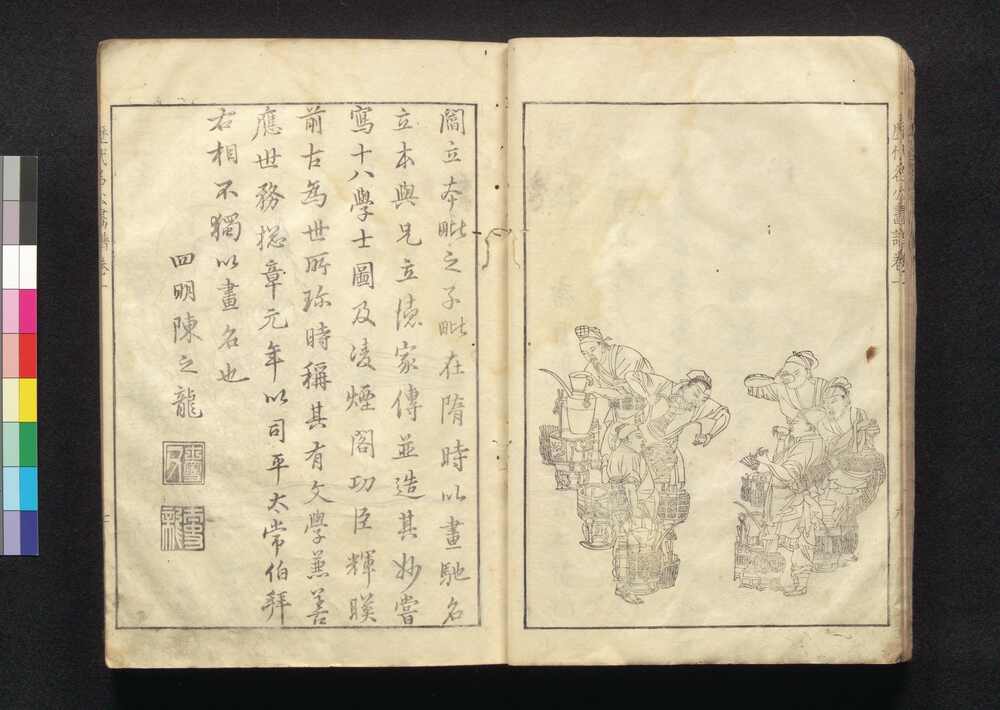 歷代名公畫譜卷一
閻立本毗之子毗在隋時以畫馳名
立本與兄立德家傳並造其妙嘗
寫十八學士圖及凌煙閣功臣輝暎
前古為世所珍時稱其有文學兼善
應世務揔章元年以司平太常伯拜
右相不獨以畫名也
四明陳之龍
歷代名公畫譜卷一